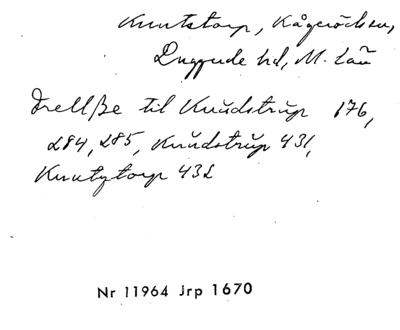 Knutstorp, Kågeröds sn,
Luggude hd, M. län
Drellße til Knŭdstrŭp 176,
284, 285, Knŭdstrŭp 431,
Knutztorp 432
Nr 11964 Jrp 1670